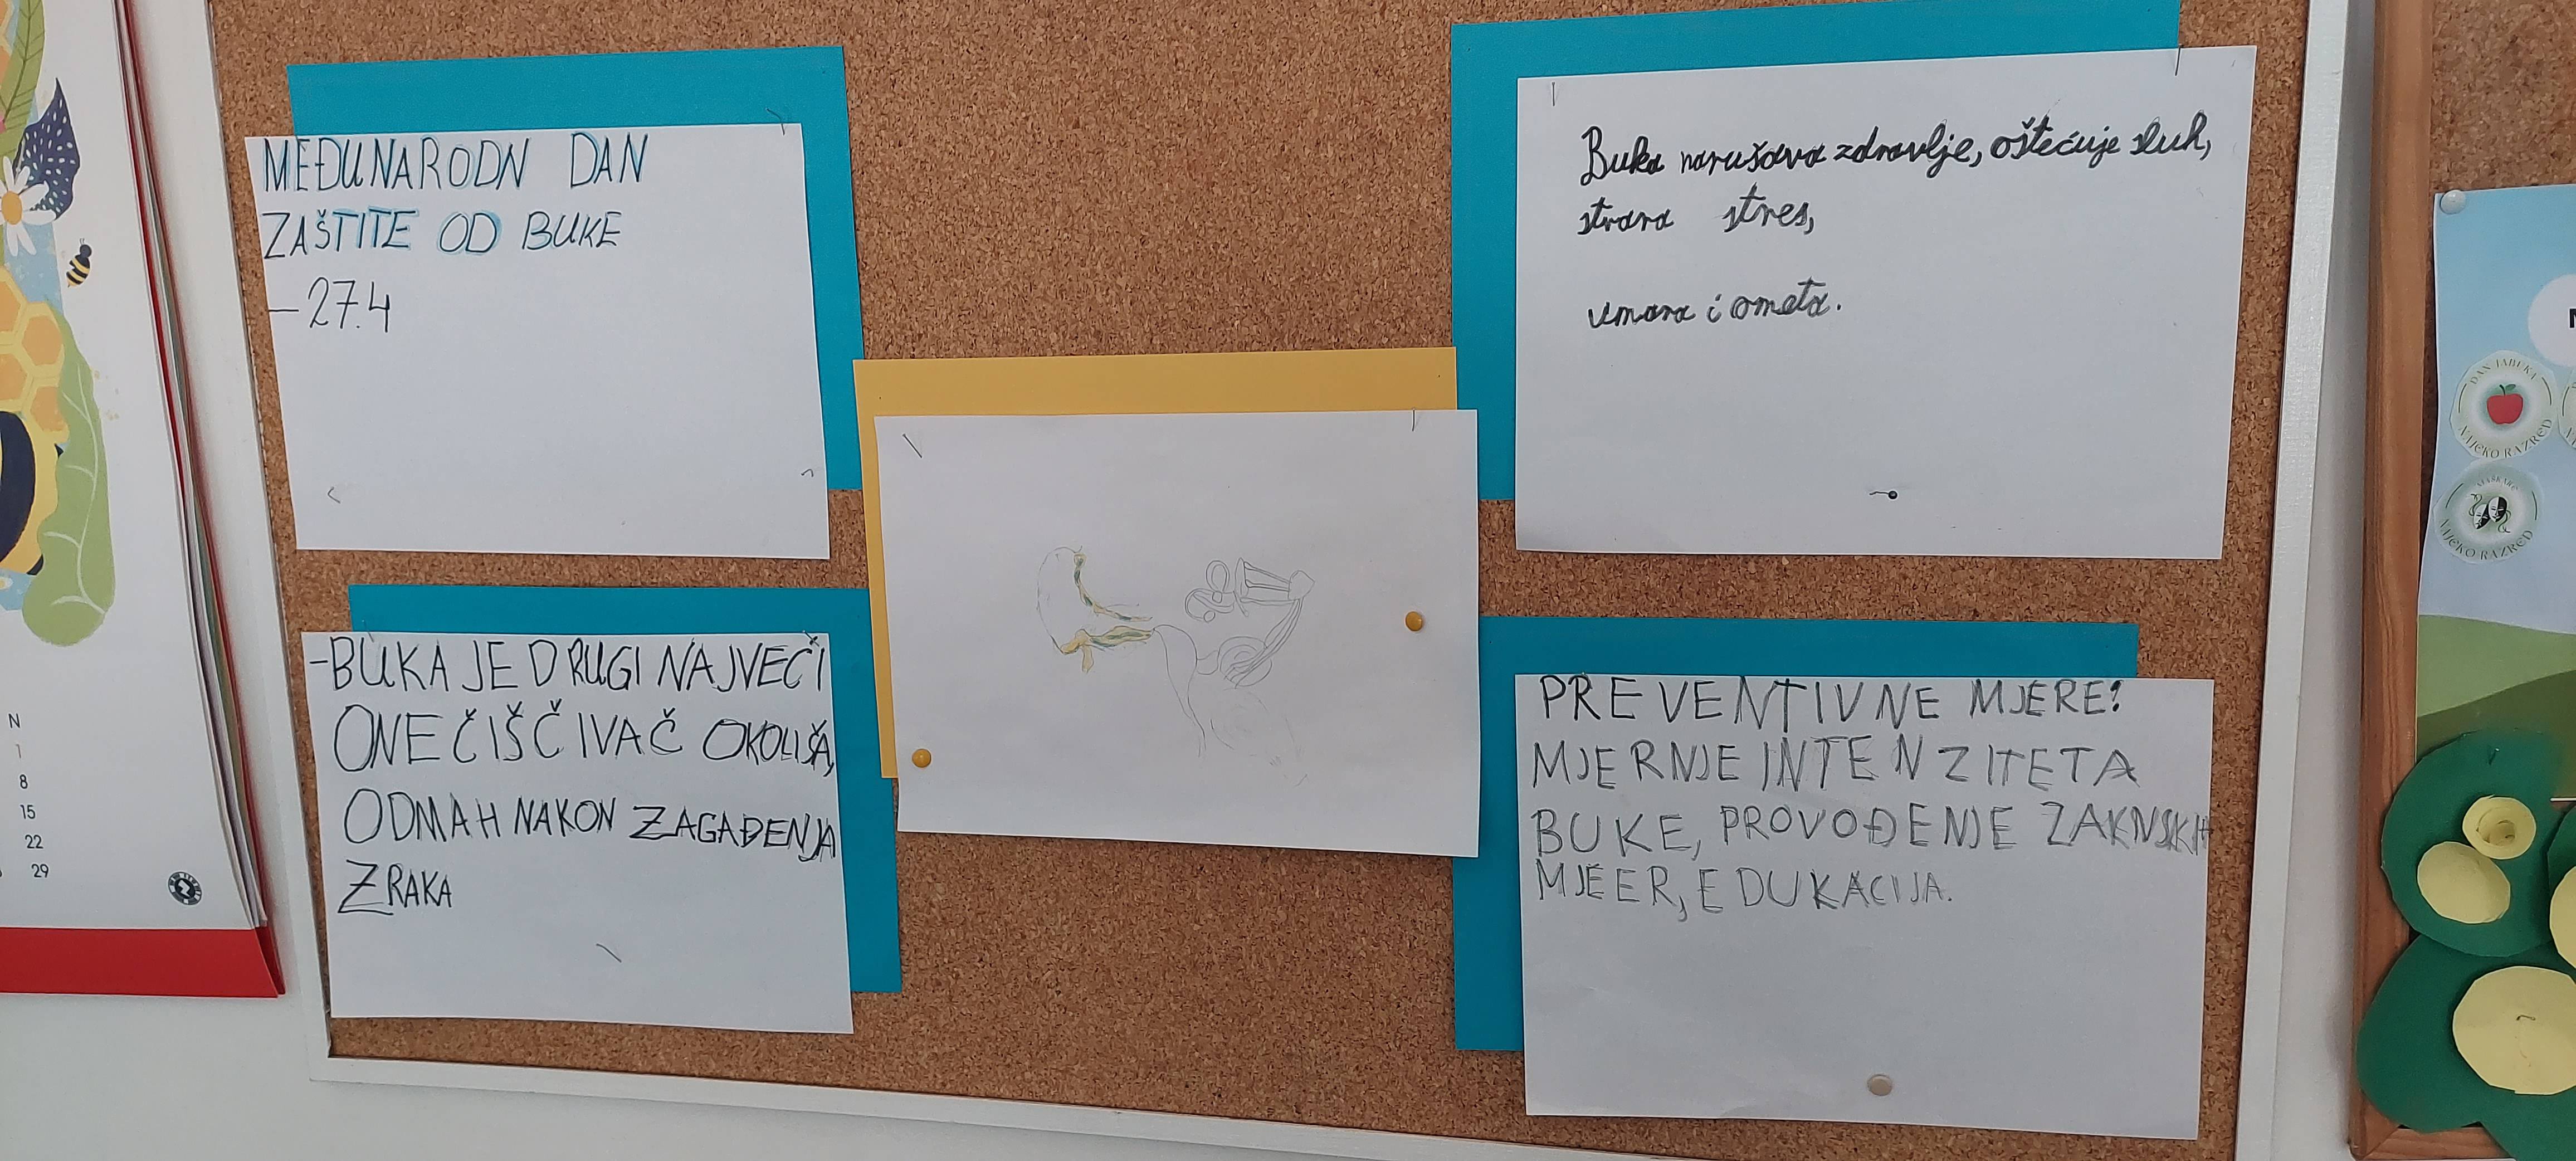 MEĐUNARODN DAN
ZAŠTITE OD BUKE
- 27.4
Buka narušava zdravlje, oštećuje sluh,
strara stres,
umara i ometa.
- BUKA JE DRUGI NAJVEĆI
ONEČIŠČIVAČ OKOLIŠA,
ODMAH NAKON ZAGAĐENJA
ZRAKA
PREVENTIVNE MJERE:
MJERNJE INTENZITETA
BUKE, PROVOĐENJE ZAKNSKIH
MJEER, EDUKACIJA.
N
1
8
15
22
29
DAN JABUKA
NAJEKO RAZRED
NAJEKO RAZRED